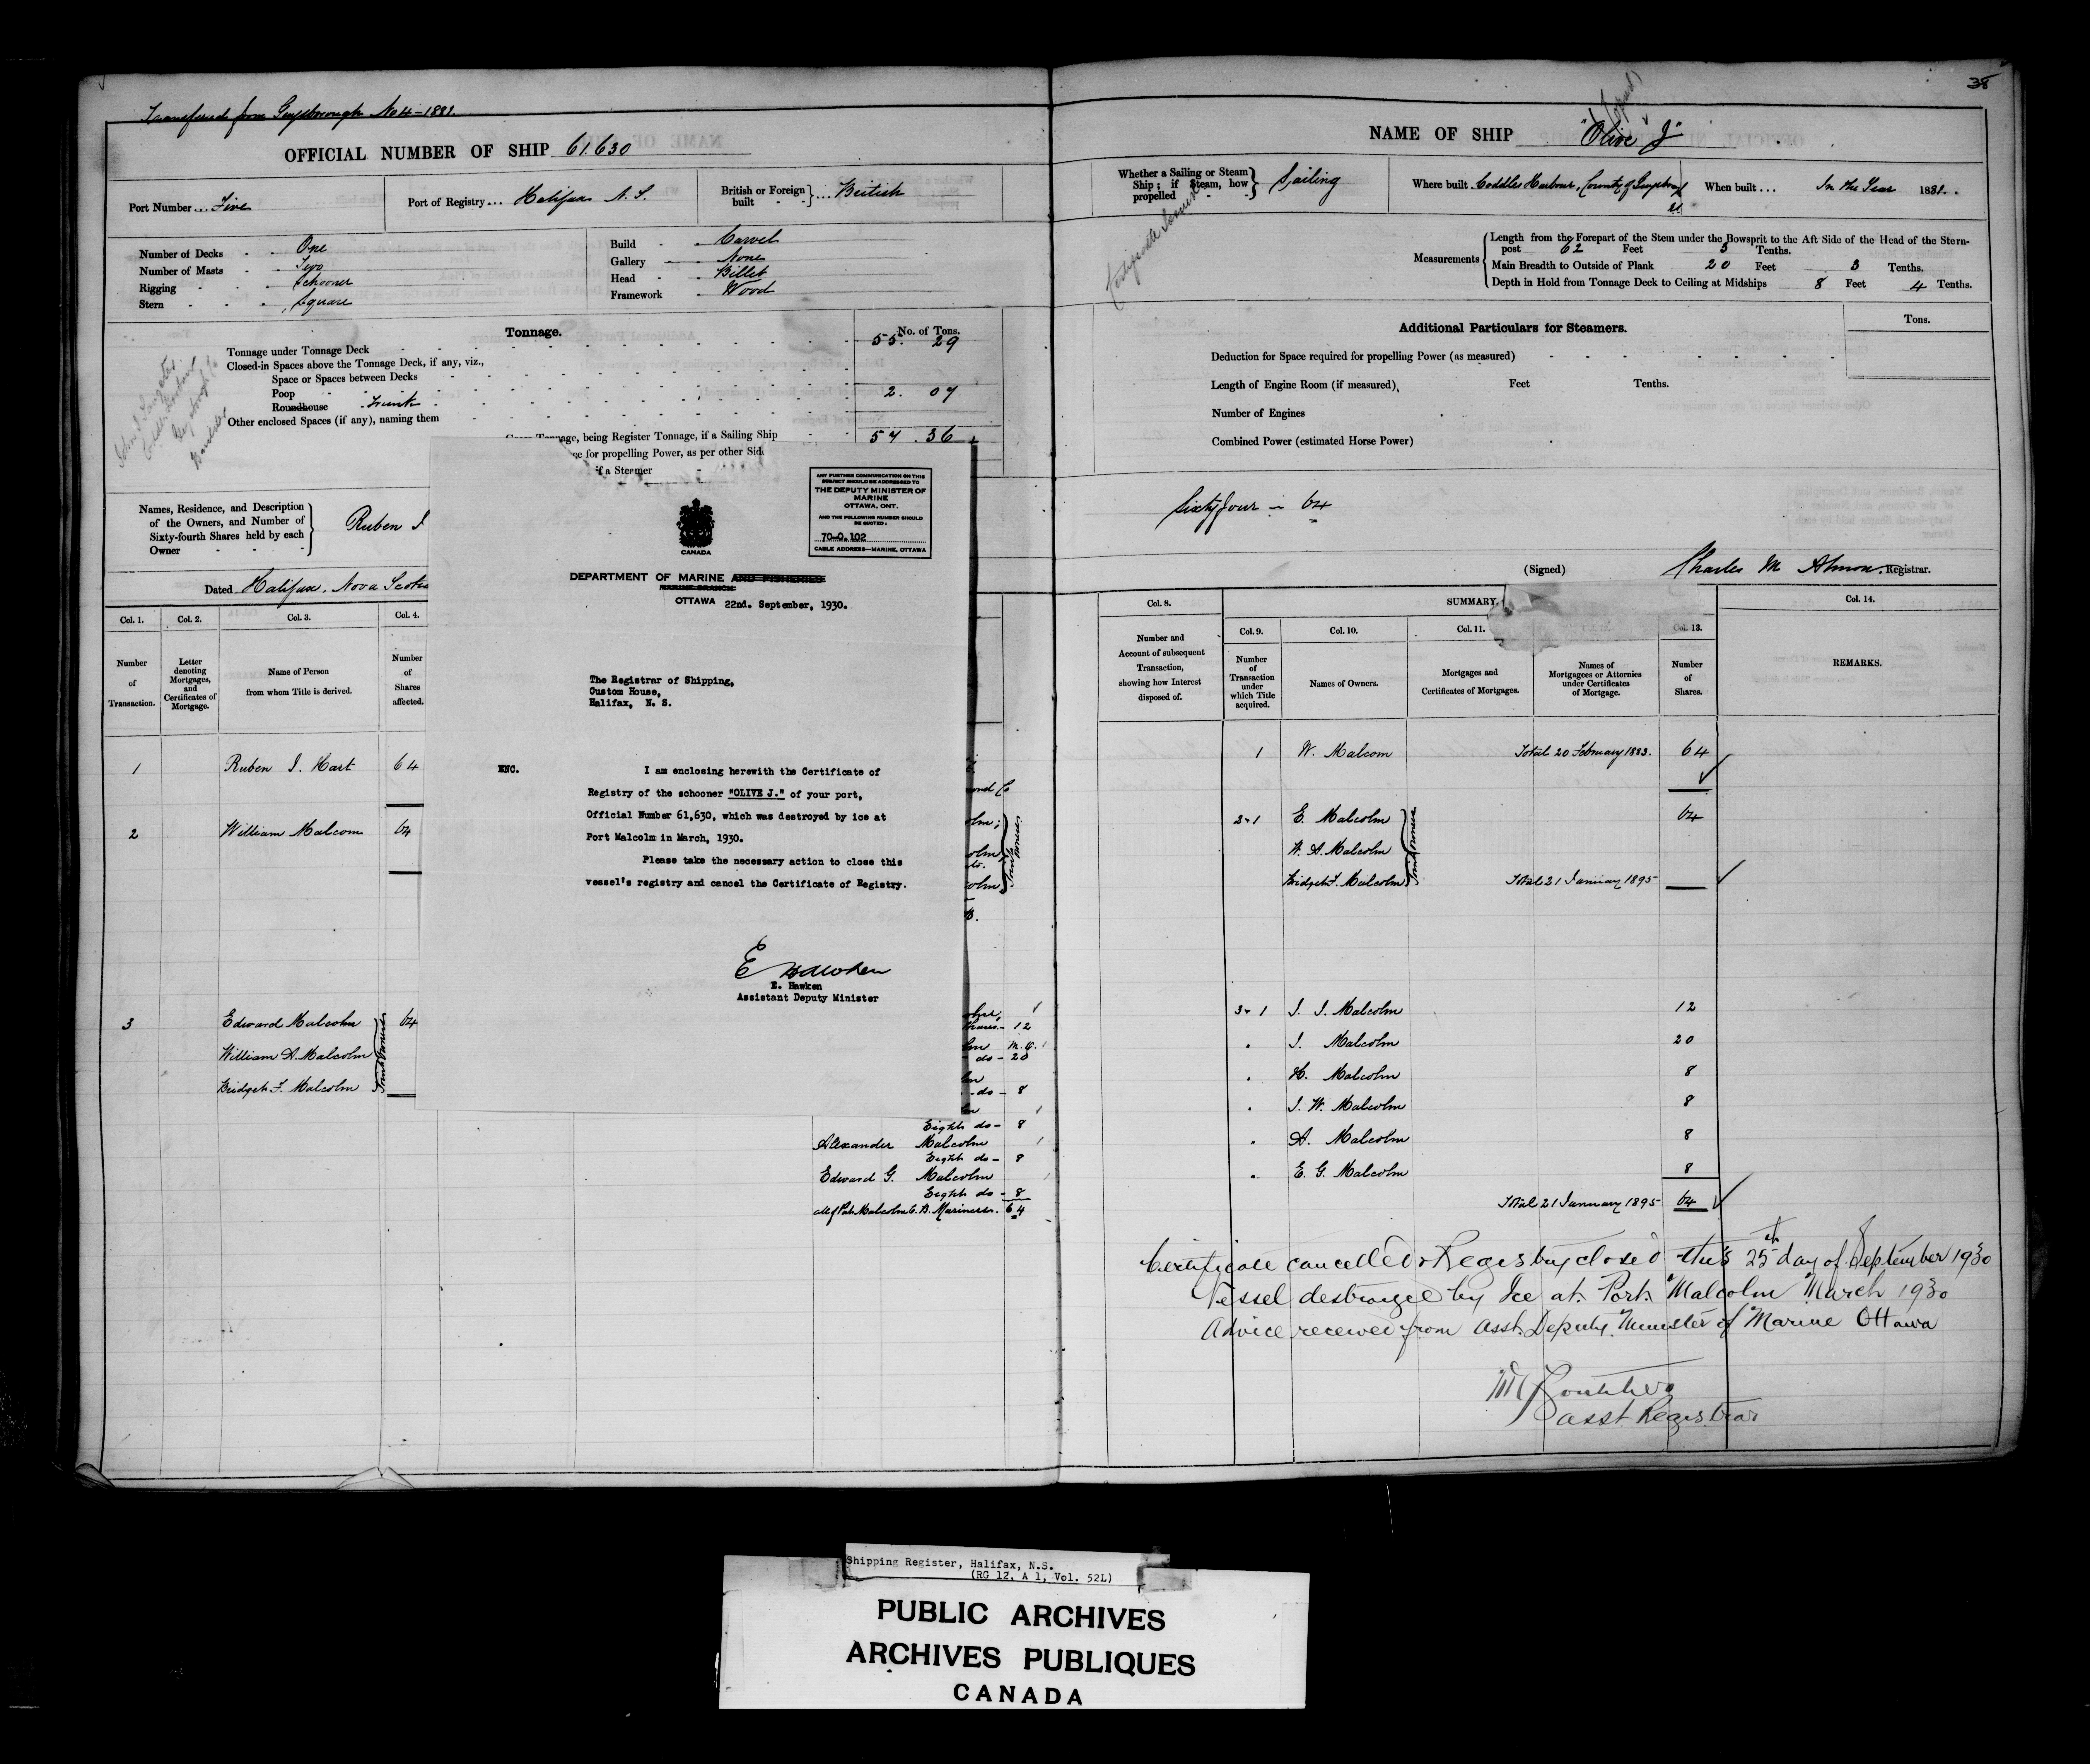 Transferred from Guysborough No 4-1881.
OFFICIAL NUMBER OF SHIP 61.630
Port Number... Five
Port of Registry... Halifax N. S.
British or Foreign built } ... British
Number of Decks - - One
Number of Masts - - Two
Rigging - - - Schooner
Stern - - - Square
Build - - Carvel
Gallery - - None
Head - - Billet
Framework - Wood
Tonnage.
No. of Tons.
Tonnage under Tonnage Deck 55. 29
Closed-in Spaces above the Tonnage Deck, if any, viz.,
Space or Spaces between Decks
Poop 2. 07
Roundhouse - Trunk
Other enclosed Spaces (if any), naming them
Tonnage, being Register Tonnage, if a Sailing Ship 57. 36
for propelling Power, as per other Side
if a Steamer
Names, Residence, and Description
of the Owners, and Number of
Sixty-fourth Shares held by each
Owner
Ruben I
Dated Halifax, Nova Scotia
Col. 1. Col. 2. Col. 3. Col. 4.
Number of Transaction.
Letter denoting Mortgages, and Certificates of Mortgage.
Name of Person from whom Title is derived.
Number of Shares affected.
1 Ruben I. Hart 64
2 William Malcom 64
3 Edward Malcolm 64
William A. Malcolm
Bridget F. Malcolm
Joint Owners
CANADA
ANY FURTHER COMMUNICATION ON THIS
SUBJECT SHOULD BE ADDRESSED TO
THE DEPUTY MINISTER OF
MARINE
OTTAWA, ONT.
AND THE FOLLOWING NUMBER SHOULD
BE QUOTED:
70-O. 102
CABLE ADDRESS—MARINE, OTTAWA
DEPARTMENT OF MARINE AND FISHERIES
MARINE BRANCH
OTTAWA 22nd. September, 1930.
The Registrar of Shipping,
Custom House,
Halifax, N. S.
ENC. I am enclosing herewith the Certificate of
Registry of the schooner "OLIVE J." of your port,
Official Number 61,630, which was destroyed by ice at
Port Malcolm in March, 1930.
Please take the necessary action to close this
vessel's registry and cancel the Certificate of Registry.
E Hawken
E. Hawken
Assistant Deputy Minister
12
do - 20
do - 8
Eights do - 8
Alexander Malcolm
Eight do - 8
Edward G. Malcolm
Eight do - 8
all of Port Malcolm C. B. Mariners. 64
38
NAME OF SHIP "Olive J"
Whether a Sailing or Steam Ship; if Steam, how propelled } Sailing
Where built Coddles Harbour, County of Guysboro
When built ... In the Year 1881.
Measurements
Length from the Forepart of the Stem under the Bowsprit to the Aft Side of the Head of the Stern-
post 62 Feet 5 Tenths.
Main Breadth to Outside of Plank 20 Feet 3 Tenths.
Depth in Hold from Tonnage Deck to Ceiling at Midships 8 Feet 4 Tenths.
Additional Particulars for Steamers.
Tons.
Deduction for Space required for propelling Power (as measured)
Length of Engine Room (if measured), Feet Tenths.
Number of Engines
Combined Power (estimated Horse Power)
Sixty four - 64
(Signed) Charles M Almon. Registrar.
Col. 8. SUMMARY. Col. 14.
Col. 9. Col. 10. Col. 11. Col. 13.
Number and Account of subsequent Transaction, showing how Interest disposed of.
Number of Transaction under which Title acquired.
Names of Owners.
Mortgages and Certificates of Mortgages.
Names of Mortgagees or Attornies under Certificates of Mortgage.
Number of Shares.
REMARKS.
1 W. Malcom Total 20 February 1883. 64
2-1 E. Malcolm 64
W. A. Malcolm
Bridget F. Malcolm Total 21 January 1895
Joint Owners
3-1 J. J. Malcolm 12
J. Malcolm 20
H. Malcolm 8
J. W. Malcolm 8
A. Malcolm 8
E. G. Malcolm 8
Total 21 January 1895 64
Certificate cancelled & Registry closed this 25th day of September 1930
Vessel destroyed by Ice at Port Malcolm March 1930
Advice received from Asst. Deputy Minister of Marine Ottawa
Asst Registrar
Shipping Register, Halifax, N.S.
(RG 12, A 1, Vol. 52L)
PUBLIC ARCHIVES
ARCHIVES PUBLIQUES
CANADA